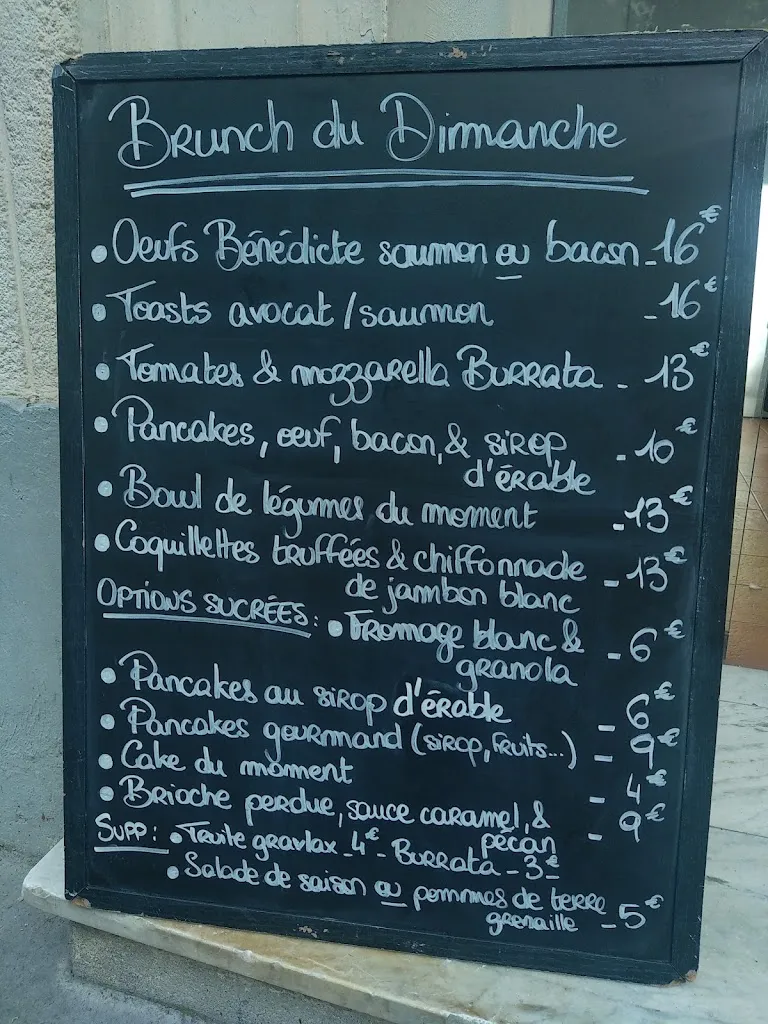 Brunch du Dimanche
• Oeufs Bénédicte saumon ou bacon - 16€
• Toasts avocat / saumon - 16€
• Tomates & mozzarella Burrata - 13€
• Pancakes, oeuf, bacon, & sirop - 10€
d'érable
• Bowl de légumes du moment - 13€
• Coquillettes truffées & chiffonnade - 13€
de jambon blanc
OPTIONS SUCRÉES : • Fromage blanc & - 6€
granola
• Pancakes au sirop d'érable - 6€
• Pancakes gourmand (sirop, fruits...) - 9€
• Cake du moment - 4€
• Brioche perdue, sauce caramel, & - 9€
pécan
SUPP : • Truite gravlax - 4€ - Burrata - 3€
• Salade de saison ou pommes de terre
grenaille - 5€